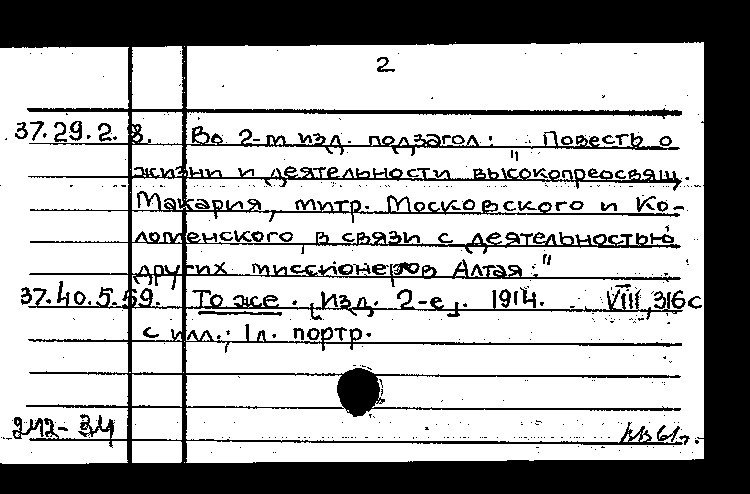 2
37.29.2.8. Во 2-м изд. подзагол: "Повесть о
жизни и деятельности высокопреосвящ.
Макария, митр. Московского и Ко-
ломенского, в связи с деятельностью
других миссионеров Алтая."
37.40.5.59. То же. [Изд. 2-е]. 1914. VIII, 316с
с илл.; 1л. портр.
242-34